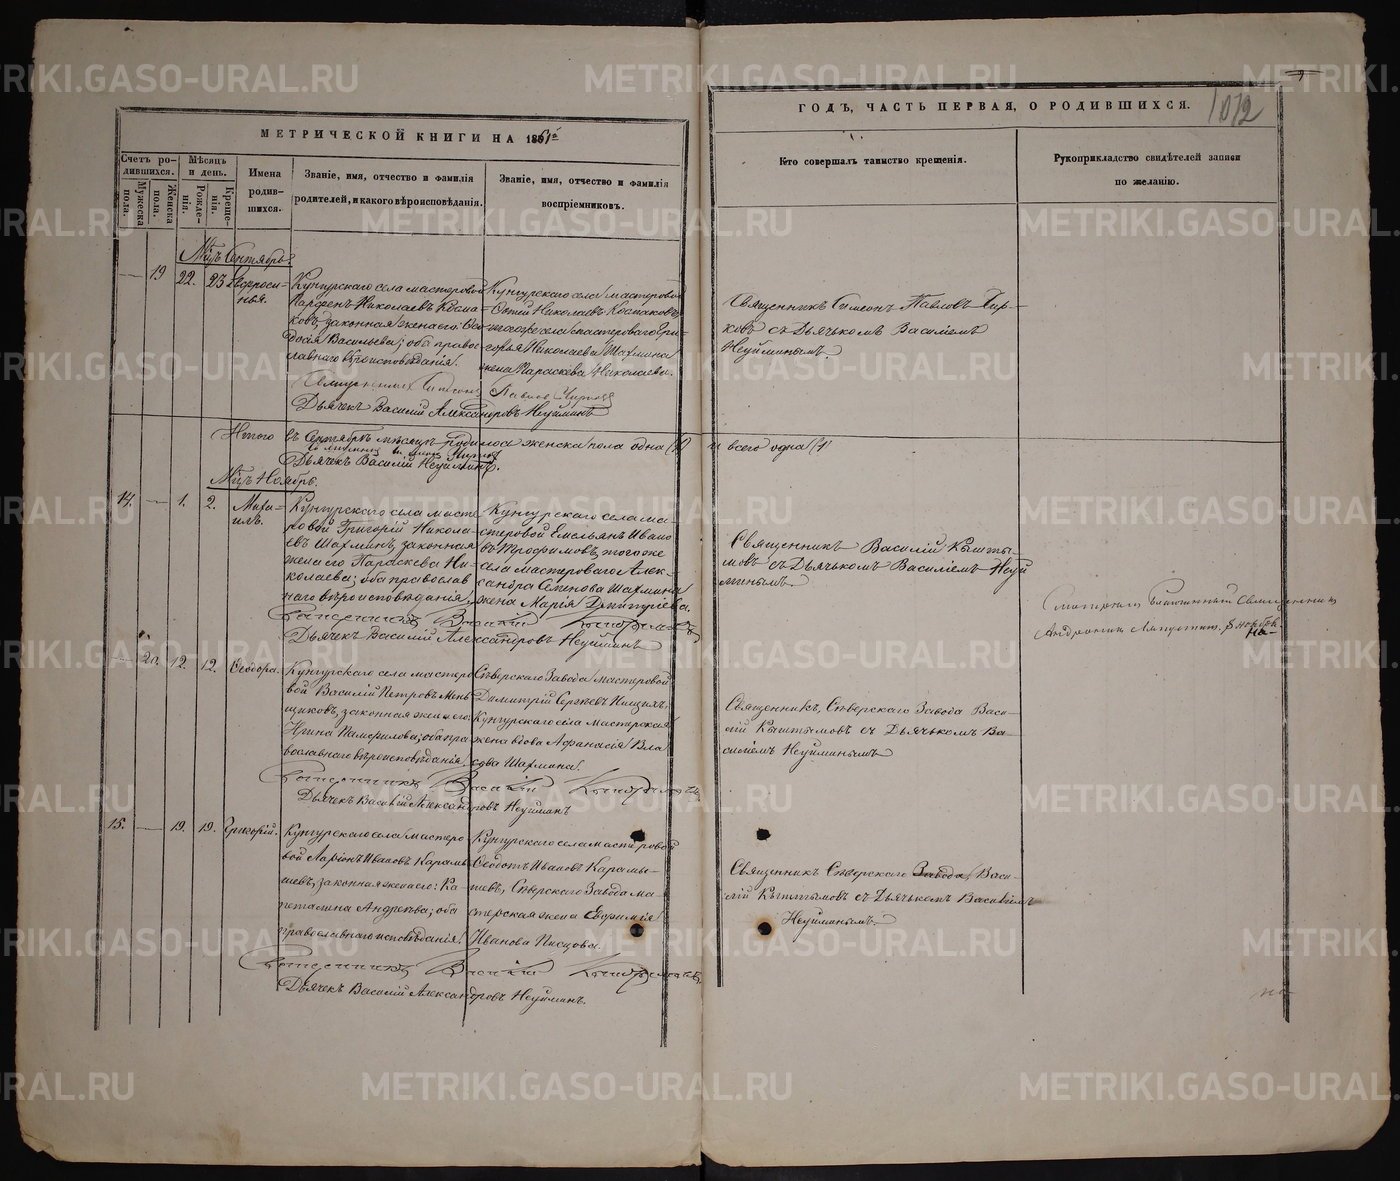 МЕТРИЧЕСКОЙ КНИГИ НА 1861й
Счетъ родившихся.
Мужеска пола.
Женска пола.
Мѣсяцъ и день.
Рожденія.
Крещенія.
Имена родившихся.
Званіе, имя, отчество и фамилія родителей, и какого вѣроисповѣданія.
Званіе, имя, отчество и фамилія воспріемниковъ.
Мцъ Сентябрь.
19 22. 23
Кунгурскаго села мастеровой
Парфенъ Николаевъ Космаковъ, законная жена его Ѳеодосія Васильева; оба православнаго вѣроисповѣданія.
Кунгурскаго села мастеровой
Николаевъ Космаковъ,
того же села мастероваго Григорья Николаева Шахмина
жена Параскева Николаева.
Дьячекъ Василій Александровъ Неуйминъ
Итого въ Сентябрѣ мѣсяцѣ родилось женска пола одна (1)
Дьячекъ Василій Неуйминъ.
Мцъ Ноябрь.
14. — 1. 2. Михаилъ.
Кунгурскаго села мастеровой Григорій Николаевъ Шахминъ, законная
жена его Параскева Николаева; оба православнаго вѣроисповѣданія.
Кунгурскаго села мастеровой Емельянъ Ивановъ Трофимовъ, того же
села мастероваго Александра Семенова Шахмина
жена Марья Дмитріева.
Священникъ Василій Кыштымовъ
Дьячекъ Василій Александровъ Неуйминъ
— 20. 12. 12. Ѳеодора.
Кунгурскаго села мастеровой Василій Петровъ Меньщиковъ, законная жена его
Ирина Памфилова; оба православнаго вѣроисповѣданія.
Сѣверскаго Завода мастеровой
Димитрій Сергѣевъ
Кунгурскаго села мастерская
жена вдова Афанасія
Шахмина.
Священникъ Василій Кыштымовъ
Дьячекъ Василій Александровъ Неуйминъ
15. — 19. 19. Григорій.
Кунгурскаго села мастеровой Ларіонъ Ивановъ Карамышевъ, законная жена его: Капеталина Андреева; оба
православнаго исповѣданія.
Кунгурскаго села мастеровой
Ѳеодотъ Ивановъ Карамышевъ, Сѣверскаго Завода мастерская жена Евфимія
Иванова Писцова.
Священникъ Василій Кыштымовъ
Дьячекъ Василій Александровъ Неуйминъ.
ГОДЪ, ЧАСТЬ ПЕРВАЯ, О РОДИВШИХСЯ.
1012
Кто совершалъ таинство крещенія.
Рукоприкладство свидѣтелей записи
по желанію.
Священникъ Симеонъ Павловъ
съ Дьячькомъ Василіемъ
Неуйминымъ.
и всего одна (1)
Священникъ Василій Кыштымовъ съ Дьячькомъ Василіемъ Неуйминымъ.
Андроникъ
Священникъ, Сѣверскаго Завода Василій Кыштымовъ съ Дьячькомъ Василіемъ Неуйминымъ
Священникъ Сѣверскаго Завода, Василій Кыштымовъ съ Дьячькомъ Василіемъ
Неуйминымъ.
METRIKI.GASO-URAL.RU